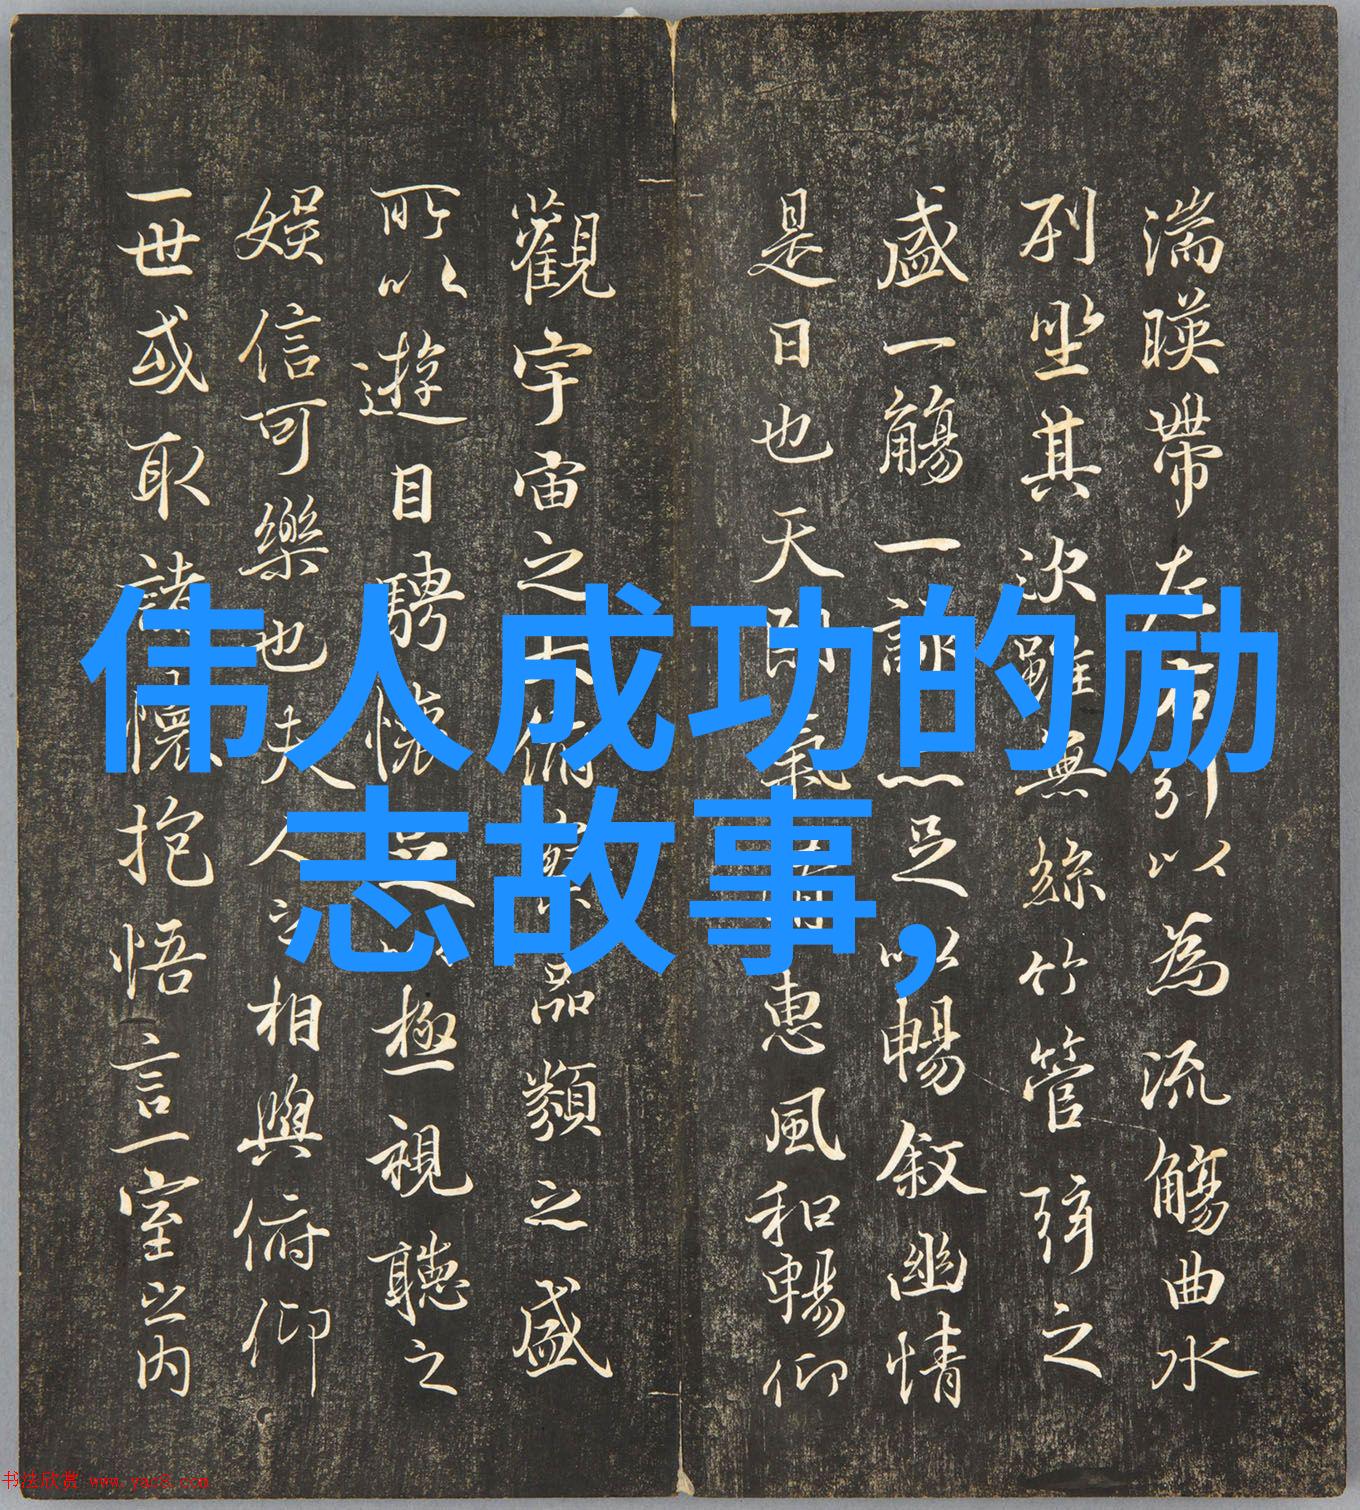 湍暎帶左右引以為流觴曲水
列坐其次雖無絲竹管弦之
盛一觴一詠亦足以暢敘幽情
是日也天朗氣清惠風和暢仰
觀宇宙之大俯察品類之盛
所以遊目騁懷足以極視聽之
娛信可樂也夫人之相與俯仰
一世或取諸懷抱悟言一室之内
伟人成功的励
志故事,
书法欣赏 www.yac8.com